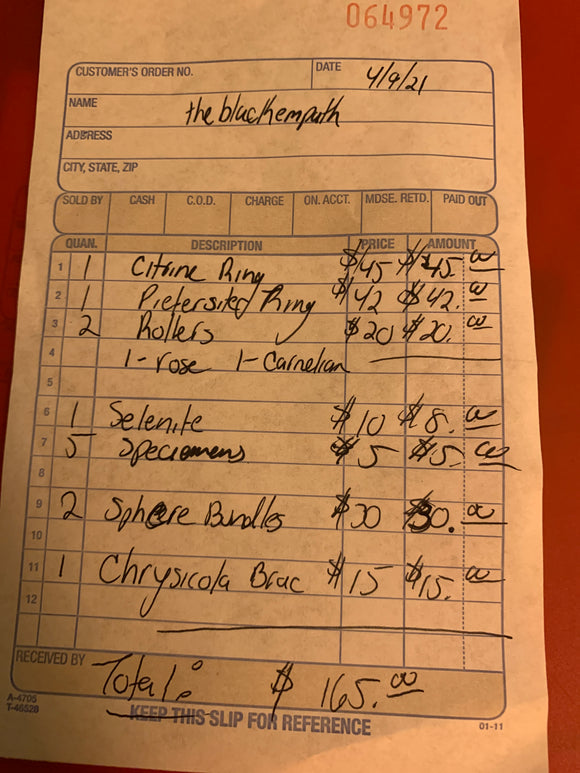 064972
CUSTOMER'S ORDER NO. DATE 4/9/21
NAME theblackempath
ADDRESS
CITY, STATE, ZIP
SOLD BY CASH C.O.D. CHARGE ON. ACCT. MDSE. RETD. PAID OUT
QUAN. DESCRIPTION PRICE AMOUNT
1 1 Citrine Ring $45 $45.00
2 1 Pietersited Ring $42 $42.00
3 2 Rollers $20 $20.00
4 1-rose 1-Carnelian
5
6 1 Selenite $10 $8.00
7 5 Speciomens $5 $15.00
8
9 2 Sphere Bundles $30 $30.00
10
11 1 Chrysicola Brac $15 $15.00
12
RECEIVED BY Total: $ 165.00
A-4705
T-46528
KEEP THIS SLIP FOR REFERENCE
01-11